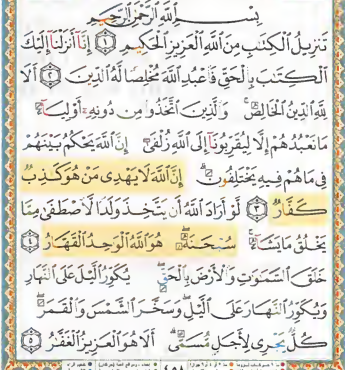 بِسْمِ ٱللَّهِ ٱلرَّحْمَٰنِ ٱلرَّحِيمِ
تَنزِيلُ ٱلْكِتَٰبِ مِنَ ٱللَّهِ ٱلْعَزِيزِ ٱلْحَكِيمِ ١ إِنَّآ أَنزَلْنَآ إِلَيْكَ
ٱلْكِتَٰبَ بِٱلْحَقِّ فَٱعْبُدِ ٱللَّهَ مُخْلِصًا لَّهُ ٱلدِّينَ ٢ أَلَا
لِلَّهِ ٱلدِّينُ ٱلْخَالِصُ وَٱلَّذِينَ ٱتَّخَذُوا۟ مِن دُونِهِۦٓ أَوْلِيَآءَ
مَا نَعْبُدُهُمْ إِلَّا لِيُقَرِّبُونَآ إِلَى ٱللَّهِ زُلْفَىٰٓ إِنَّ ٱللَّهَ يَحْكُمُ بَيْنَهُمْ
فِى مَا هُمْ فِيهِ يَخْتَلِفُونَ إِنَّ ٱللَّهَ لَا يَهْدِى مَنْ هُوَ كَٰذِبٌ
كَفَّارٌ ٣ لَّوْ أَرَادَ ٱللَّهُ أَن يَتَّخِذَ وَلَدًا لَّٱصْطَفَىٰ مِمَّا
يَخْلُقُ مَا يَشَآءُ سُبْحَٰنَهُۥ هُوَ ٱللَّهُ ٱلْوَٰحِدُ ٱلْقَهَّارُ ٤
خَلَقَ ٱلسَّمَٰوَٰتِ وَٱلْأَرْضَ بِٱلْحَقِّ يُكَوِّرُ ٱلَّيْلَ عَلَى ٱلنَّهَارِ
وَيُكَوِّرُ ٱلنَّهَارَ عَلَى ٱلَّيْلِ وَسَخَّرَ ٱلشَّمْسَ وَٱلْقَمَرَ
كُلٌّ يَجْرِى لِأَجَلٍ مُّسَمًّى أَلَا هُوَ ٱلْعَزِيزُ ٱلْغَفَّٰرُ ٥
٤٥٨